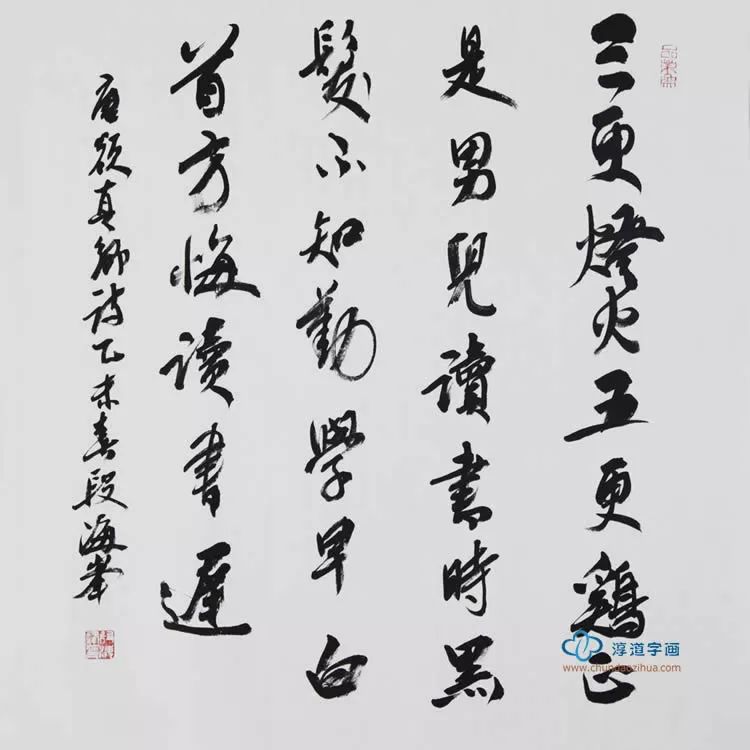 三更燈火五更鷄正
是男兒讀書時黑
髮不知勤學早白
首方悔读書遲
唐顏真卿诗乙未春段海峯
淳道字画
www.chundaozihua.com